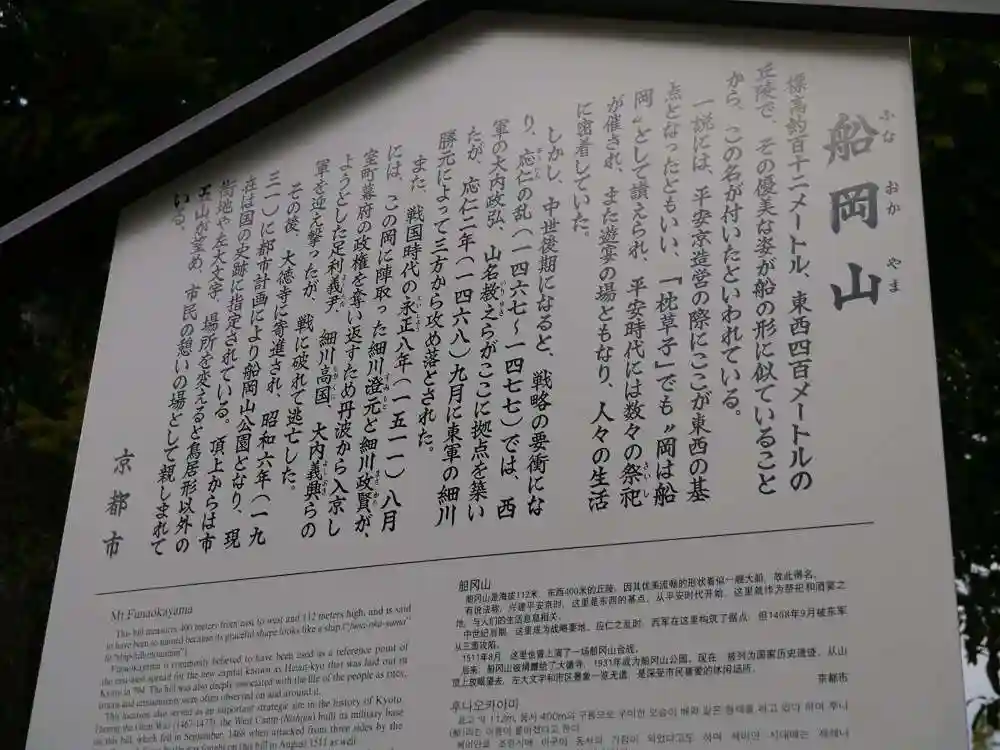 船岡山
ふな おか やま
標高約百十二メートル、東西四百メートルの
丘陵で、その優美な姿が船の形に似ていること
から、この名が付いたといわれている。
一説には、平安京造営の際にここが東西の基
点となったともいい、「枕草子」でも〝岡は船
岡〟として讃えられ、平安時代には数々の祭祀
が催され、また遊宴の場ともなり、人々の生活
に密着していた。
しかし、中世後期になると、戦略の要衝にな
り、応仁の乱(一四六七〜一四七七)では、西
軍の大内政弘、山名教之らがここに拠点を築い
たが、応仁二年(一四六八)九月に東軍の細川
勝元によって三方から攻め落とされた。
また、戦国時代の永正八年(一五一一)八月
には、この岡に陣取った細川澄元と細川政賢が、
室町幕府の政権を奪い返すため丹波から入京し
ようとした足利義尹、細川高国、大内義興らの
軍を迎え撃ったが、戦に破れて逃亡した。
その後、大徳寺に寄進され、昭和六年(一九
三一)に都市計画により船岡山公園となり、現
在は国の史跡に指定されている。頂上からは市
街地や左大文字、場所を変えると鳥居形以外の
五山が望め、市民の憩いの場として親しまれて
いる。
京都市
Mt Funaokayama
This hill measures 400 meters from east to west and 112 meters high, and is said
to have been so named because its graceful shape looks like a ship ("funa-oka-yama"
is "ship-hill-mountain")
Funaokayama is commonly believed to have been used as a reference point of
the east-west spread for the new capital known as Heian-kyo that was laid out in
Kyoto in 794. The hill was also deeply associated with the life of the people as rites,
rituals and ceremonies were often observed on and around it.
This location also served as an important strategic site in the history of Kyoto
During the Onin War (1467-1477), the West Camp (Nishijin) built its military base
on this hill, which fell in September, 1468 when attacked from three sides by the
fought on this hill in August 1511 as well
船冈山
船冈山是海拔112米、东西400米的丘陵，因其优美流畅的形状看似一艘大船，故此得名。
有说法称，兴建平安京时，这里是东西的基点。从平安时代开始，这里就作为祭祀和酒宴之
地，与人们的生活息息相关。
中世纪后期，这里成为战略要地。应仁之乱时，西军在这里构筑了据点，但1468年9月被东军
从三面攻陷。
1511年8月，这里也曾上演了一场船冈山会战。
后来，船冈山被捐赠给了大德寺，1931年成为船冈山公园。现在，被列为国家历史遗迹。从山
顶上放眼望去，左大文字和市区景象一览无遗，是深受市民喜爱的休闲场所。
京都市
후나오카야마